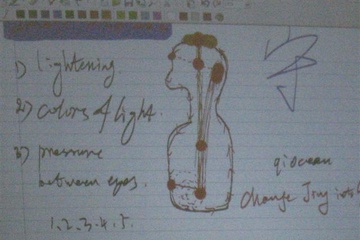 1) lightening.
2) colors of light.
3) pressure
between eyes.
1.2.3.4.5.
字
qi ocean
change Jing into